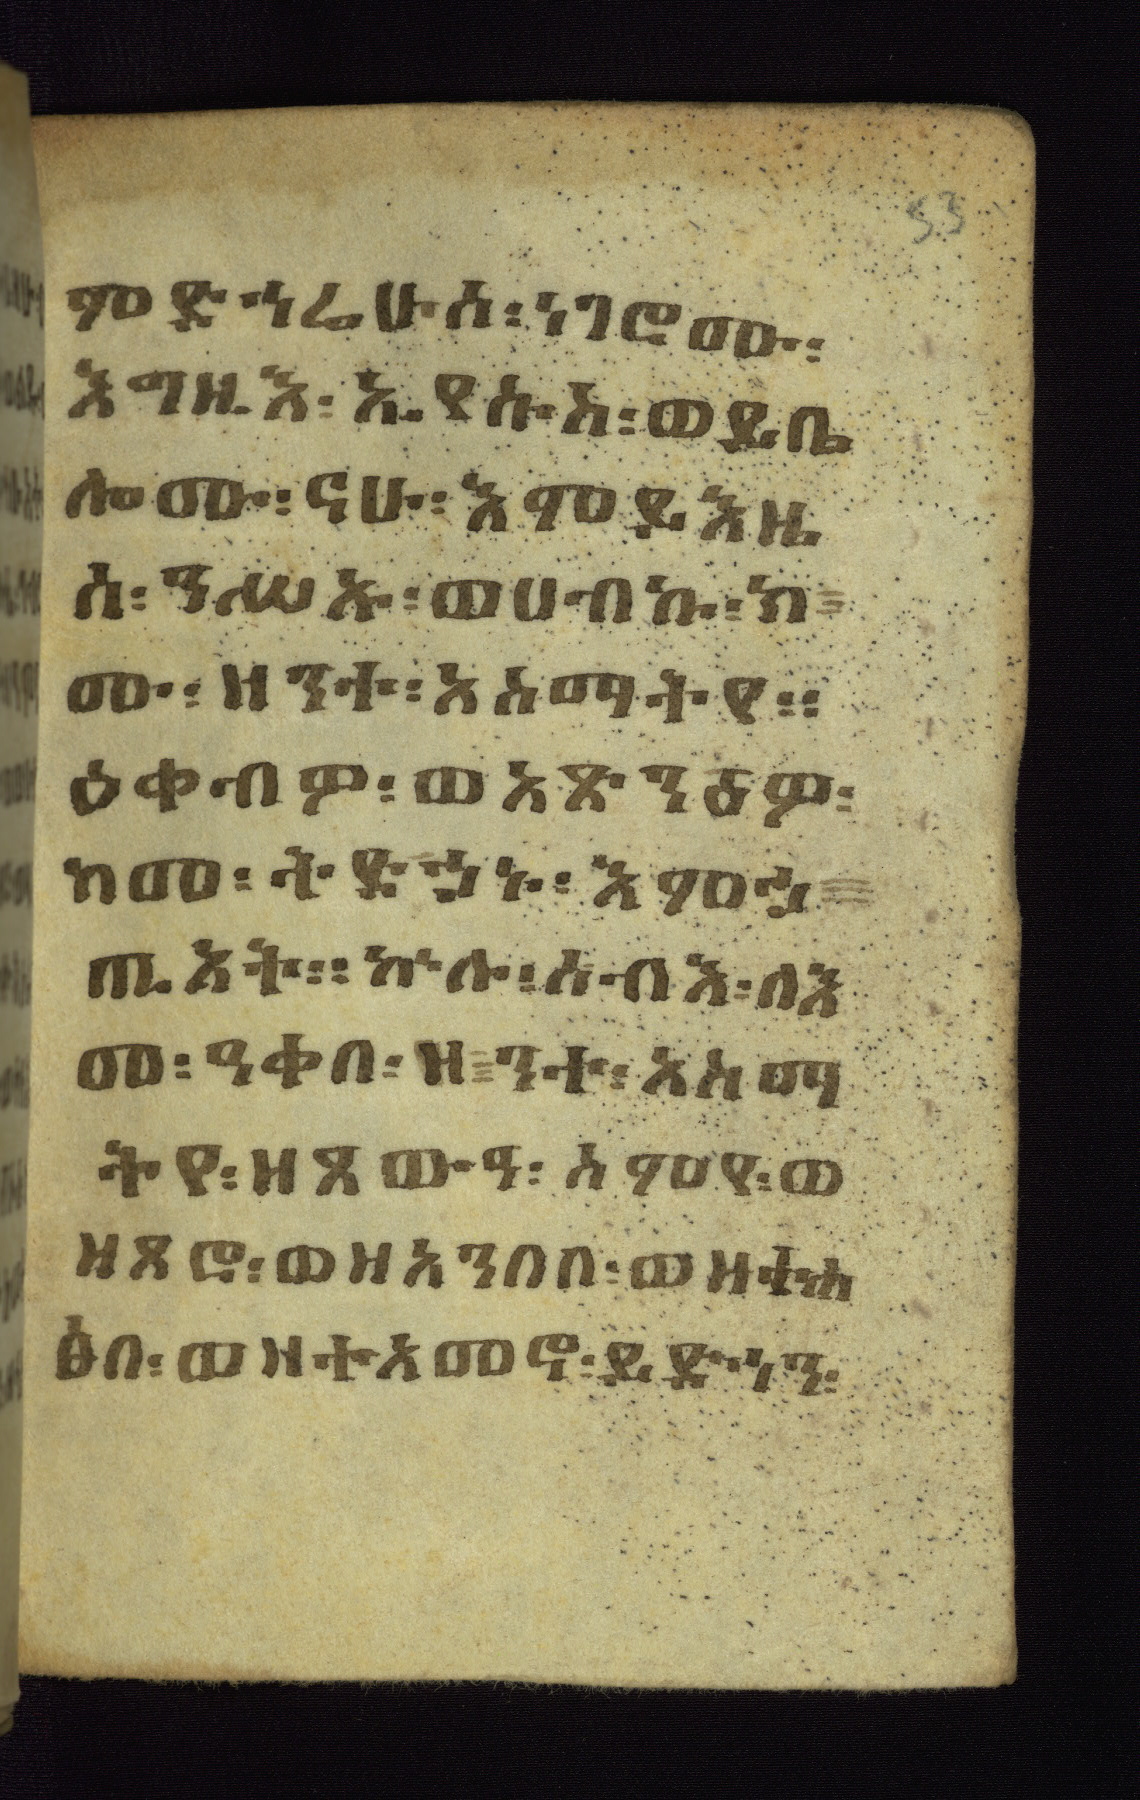 53
ምድኅሬሁሰ፡ነገሮሙ፡
እግዚእ፡ኢየሱስ፡ወይቤ
ሎሙ፡ናሁ፡እምይእዜ
ሰ፡ንሥኡ፡ወሀብኩ፡ክ
ሙ፡ዘንተ፡አስማትየ።
ዕቀብዎ፡ወአጽንዕዎ፡
ከመ፡ትድኃኑ፡እምኃ
ጢአት።ኵሉ፡ሰብእ፡ለእ
መ፡ዓቀበ፡ዘንተ፡አስማ
ትየ፡ዘጾውዓ፡ስምየ፡ወ
ዘጾሮ፡ወዘአንበበ፡ወዘተሐ
ፅበ፡ወዘተአመኖ፡ይድኅን፡